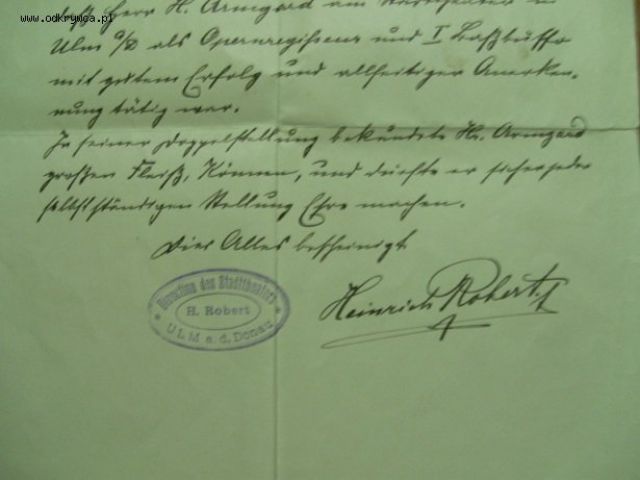 www.odkrywca.pl
daß Herr H. Armgard am Stadttheater in
Ulm a/D als Opernregisseur und I Baßbuffo
mit gutem Erfolg und allseitiger Anerken-
nung tätig war.
In seiner Doppelstellung bekundete H. Armgard
großen Fleiß, Können, und dürfte er sicher jeder
selbstständigen Stellung Ehre machen.
Dies Alles bescheinigt
Heinrich Robert
Direction des Stadttheaters
H. Robert
ULM a. d. Donau